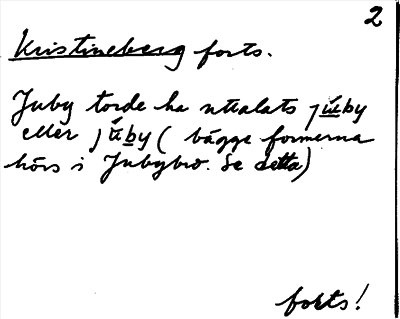 2
Kristineberg forts.
Juby torde ha uttalats júby
eller júby (bägge formerna
hörs i Jubybro. Se detta)
forts!